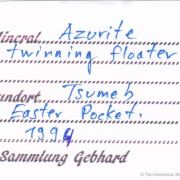 Mineral Azurite
twinning floater
Fundort. Tsumeb
Easter Pocket,
1994
Sammlung Gebhard